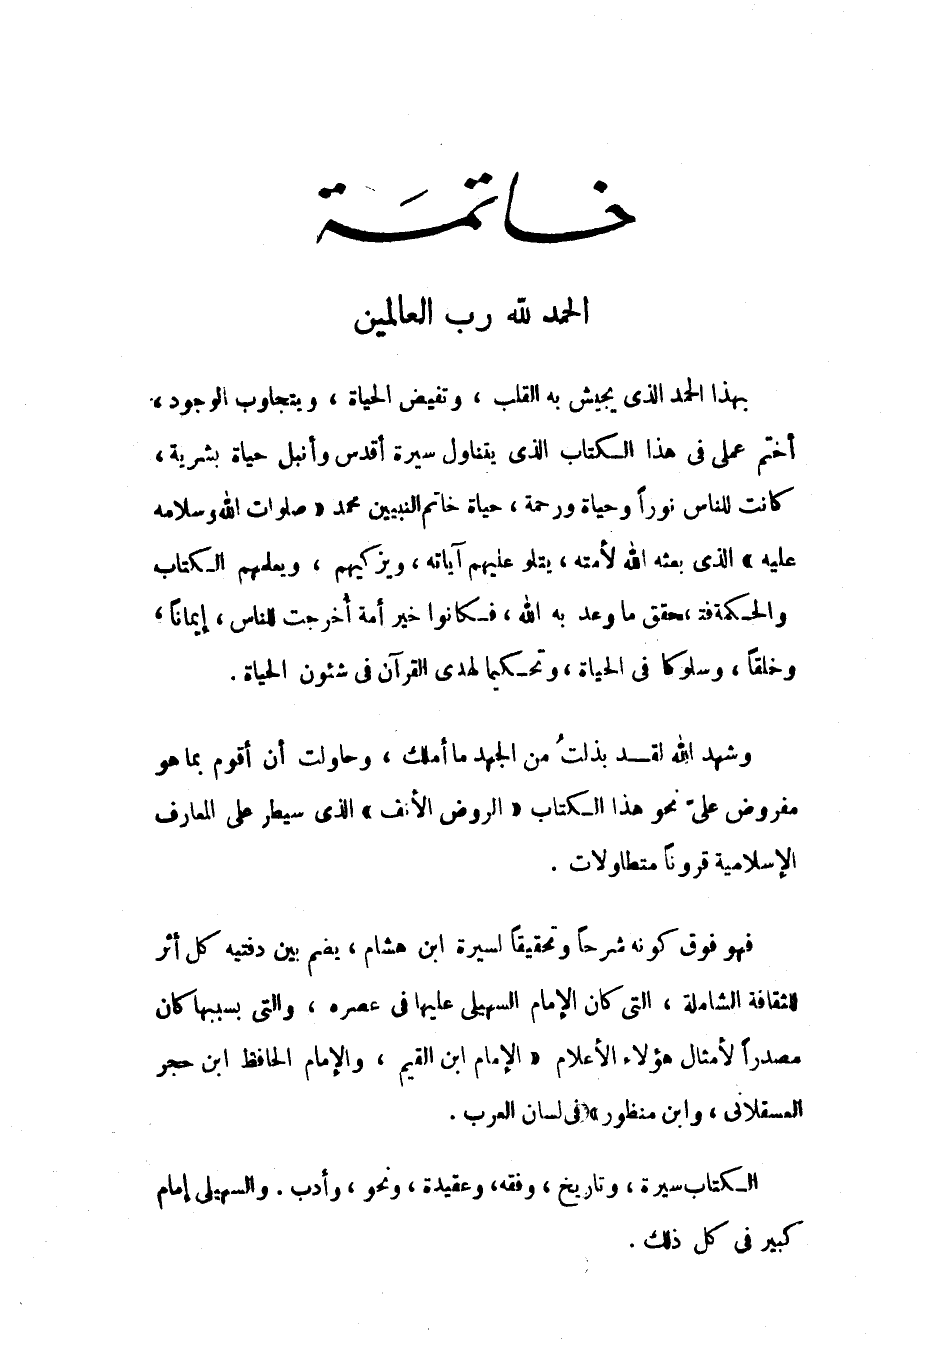 خاتمة
الحمد لله رب العالمين
بهذا الحمد الذى يجيش به القلب ، وتفيض الحياة ، ويتجاوب الوجود ،
أختم عملى فى هذا الكتاب الذى يتناول سيرة أقدس وأنبل حياة بشرية ،
كانت للناس نوراً وحياة ورحمة ، حياة خاتم النبيين محمد « صلوات الله وسلامه
عليه » الذى بعثه الله لأمته ، يتلو عليهم آياته ، ويزكيهم ، ويعلمهم الكتاب
والحكمة فتحقق ما وعد به الله ، فكانوا خير أمة أُخرجت للناس ، إيماناً ،
وخلقاً ، وسلوكا فى الحياة ، وتحكيما لهدى القرآن فى شئون الحياة .
وشهد الله لقد بذلتُ من الجهد ما أملك ، وحاولت أن أقوم بما هو
مفروض علىّ نحو هذا الكتاب « الروض الأنف » الذى سيطر على المعارف
الإسلامية قروناً متطاولات .
فهو فوق كونه شرحاً وتحقيقاً لسيرة ابن هشام ، يضم بين دفتيه كل أثر
للثقافة الشاملة ، التى كان الإمام السهيلى عليها فى عصره ، والتى بسببها كان
مصدراً لأمثال هؤلاء الأعلام « الإمام ابن القيم ، والإمام الحافظ ابن حجر
العسقلانى ، وابن منظور » فى لسان العرب .
الكتاب سيرة ، وتاريخ ، وفقه ، وعقيدة ، ونحو ، وأدب . والسهيلى إمام
كبير فى كل ذلك .